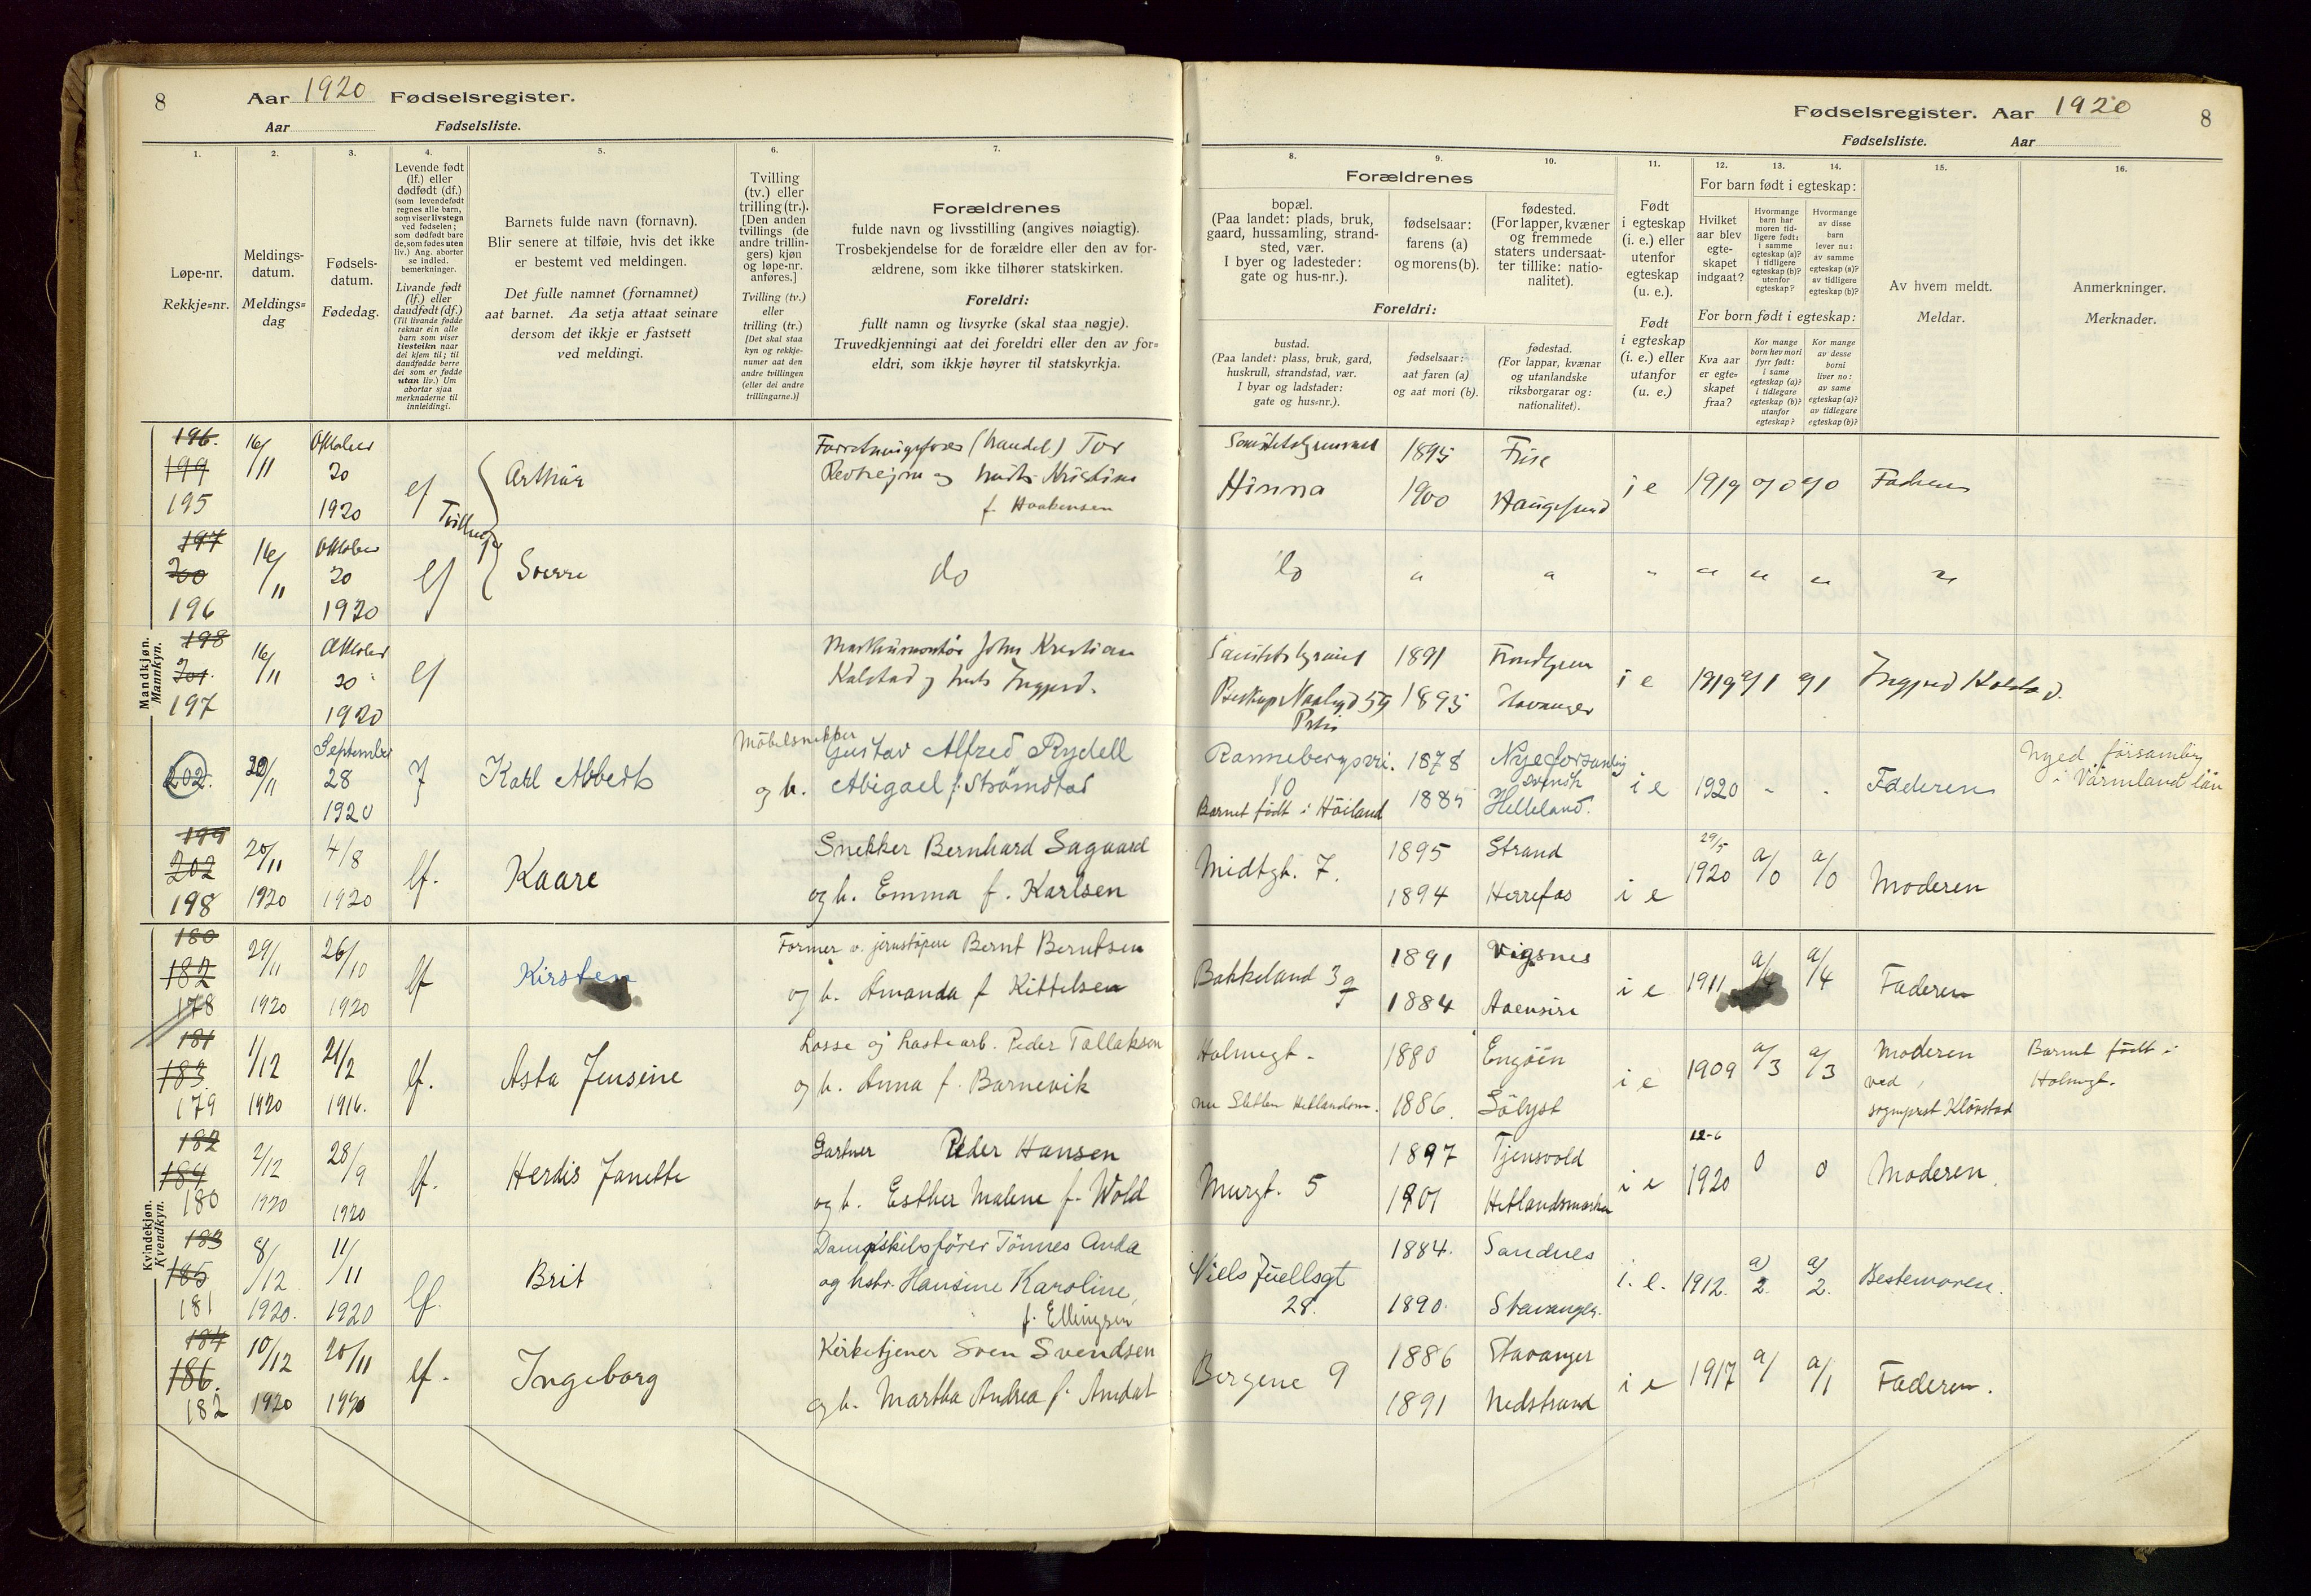 8
Aar 1920 Fødselsregister.
Aar Fødselsliste.
1.
Løpe-nr.
Rekkje=nr.
2.
Meldings-
datum.
Meldings=
dag
3.
Fødsels-
datum.
Fødedag.
4.
Levende født
(lf.) eller
dødfødt (df.)
(som levendefødt
regnes alle barn,
som viser livstegn
ved fødselen;
som dødfødt bare
de, som fødes uten
liv.) Ang. aborter
se indled.
bemerkninger.
Livande født
(lf.) eller
daudfødt (df.)
(Til livande fødde
reknar ein alle
barn som viser
livsteikn naar
dei kjem til; til
daudfødde berre
dei som er fødde
utan liv.) Um
abortar sjaa
merknaderne til
innleidingi.
5.
Barnets fulde navn (fornavn).
Blir senere at tilføie, hvis det ikke
er bestemt ved meldingen.
Det fulle namnet (fornamnet)
aat barnet. Aa setja attaat seinare
dersom det ikkje er fastsett
ved meldingi.
6.
Tvilling
(tv.) eller
trilling (tr.).
[Den anden
tvillings (de
andre trillin-
gers) kjøn
og løpe-nr.
anføres.]
Tvilling (tv.)
eller
trilling (tr.)
[Det skal staa
kyn og rekkje-
numer aat den
andre tvillingen
(eller dei andre
trillingarne.)]
7.
Forældrenes
fulde navn og livsstilling (angives nøiagtig).
Trosbekjendelse for de forældre eller den av for-
ældrene, som ikke tilhører statskirken.
Foreldri:
fullt namn og livsyrke (skal staa nøgje).
Truvedkjenningi aat dei foreldri eller den av for=
eldri, som ikkje høyrer til statskyrkja.
Mandkjøn.
Mannkyn.
196.
199
195
16/11
Oktober
20
1920
lf
Tvillinger
Arthur
(handel) Tor
og hustr. Kristine
f. Haakensen
197
200
196
16/11
Oktober
20
1920
lf
Sverre
do
198
201.
197
16/11
Oktober
20
1920
lf
John Kristian
Kalstad og hustr Ingjerd.
202.
20/11
September
28
1920
lf
Karl Abbeth
Möbelsnekker
Gustav Alfred Rydell
og h. Abigael f. Strömstad
199
202
198
20/11
1920
4/8
1920
lf.
Kaare
Snekker Bernhard Sagaard
og h. Emma f. Karlsen
Kvindekjøn.
Kvendkyn.
180
182
178
29/11
1920
26/10
1920
lf
Kirsten
Former v. jernstøperi Bernt Berntsen
og h. Amanda f Kittelsen
181
183
179
1/12
1920
21/2
1916.
lf.
Asta Jensine
Losse og lastearb. Peder Tallaksen
og h. Anna f. Barnevik
182
184
180
2/12
1920
28/9
1920
lf.
Herdis Janette
Gartner Peder Hansen
og h. Esther Malene f. Wold
183
185
181
8/12
1920.
11/11
1920
lf.
Brit
Dampskibsfører Tönnes Anda
og hstr. Hansine Karoline,
f. Ellingsen
184
186.
182
10/12
1920
20/11
1920
lf.
Ingeborg
Kirketjener Sven Svendsen
og h. Martha Andrea f. Amdal
Fødselsregister. Aar 1920
8
Fødselsliste. Aar
Forældrenes
8.
bopæl.
(Paa landet: plads, bruk,
gaard, hussamling, strand-
sted, vær.
I byer og ladesteder:
gate og hus-nr.).
9.
fødselsaar:
farens (a)
og morens (b).
10.
fødested.
(For lapper, kvæner
og fremmede
staters undersaat-
ter tillike: natio-
nalitet).
Foreldri:
bustad.
(Paa landet: plass, bruk, gard,
huskrull, strandstad, vær.
I byar og ladstader:
gate og hus=nr.).
fødselsaar:
aat faren (a)
og aat mori (b).
fødestad.
(For lappar, kvænar
og utanlandske
riksborgarar og:
nationalitet).
11.
Født
i egteskap
(i. e.) eller
utenfor
egteskap
(u. e.).
Født
i egteskap
(i. e.) eller
utanfor
(u. e.)
12.
13.
14.
For barn født i egteskap:
Hvilket
aar blev
egte-
skapet
indgaat?
Hvormange
barn har
moren tid-
ligere født:
i samme
egteskap (a)?
i tidligere
egteskap (b)?
utenfor
egteskap?
Hvormange
av disse
barn
lever nu:
av samme
egteskap (a)?
av tidligere
egteskap (b)?
For born født i egteskap:
Kva aar
er egte=
skapet
fraa?
Kor mange
born hev mori
fyrr født:
i same
egteskap (a)?
i tidlegare
egteskap (b)?
utanfor
egteskap?
Kor mange
av desse
borni
liver no:
av same
egteskap (a)?
av tidlegare
egteskap (b)?
15.
Av hvem meldt.
Meldar.
16.
Anmerkninger.
Merknader.
Hinna
1895
1900
Haugesund
i e
1919
a/0
a/0
Faderen
do
"
"
"
"
"
"
"
1891
1895
Stavanger
i e
1919
a/1
a/1
Ingjerd Kalstad.
Rannebergsvei.
10
Barnet født i Høiland
1878
1885
svensk
Helleland.
i e
1920
-
-
Faderen
Nyed församling
i Värmland län
Midtgt. 7.
1895
1894
Strand
Herrefos
i e
29/5
1920
a/0
a/0
Moderen
Bakkeland 3
1891
1884
Vigsnes
i e
1911
a/4
a/4
Faderen
Holmegt.
1880
1886.
Engöen
Sölyst
i e
1909
a/3
a/3
Moderen
ved
sogneprest Kløvstad
Barnet født i
Holmegt.
Murgt. 5
1897
1901
Tjensvold
Hetlandsmarken
i e
12-6
1920
0
0
Moderen.
Niels Juellsgt
28.
1884.
1890.
Sandnes
Stavanger.
i. e.
1912.
a) 2.
a) 2.
Bestemoren.
Bergene 9
1886
1891
Stavanger
Nedstrand
i e
1917
a/
a/1
Faderen.